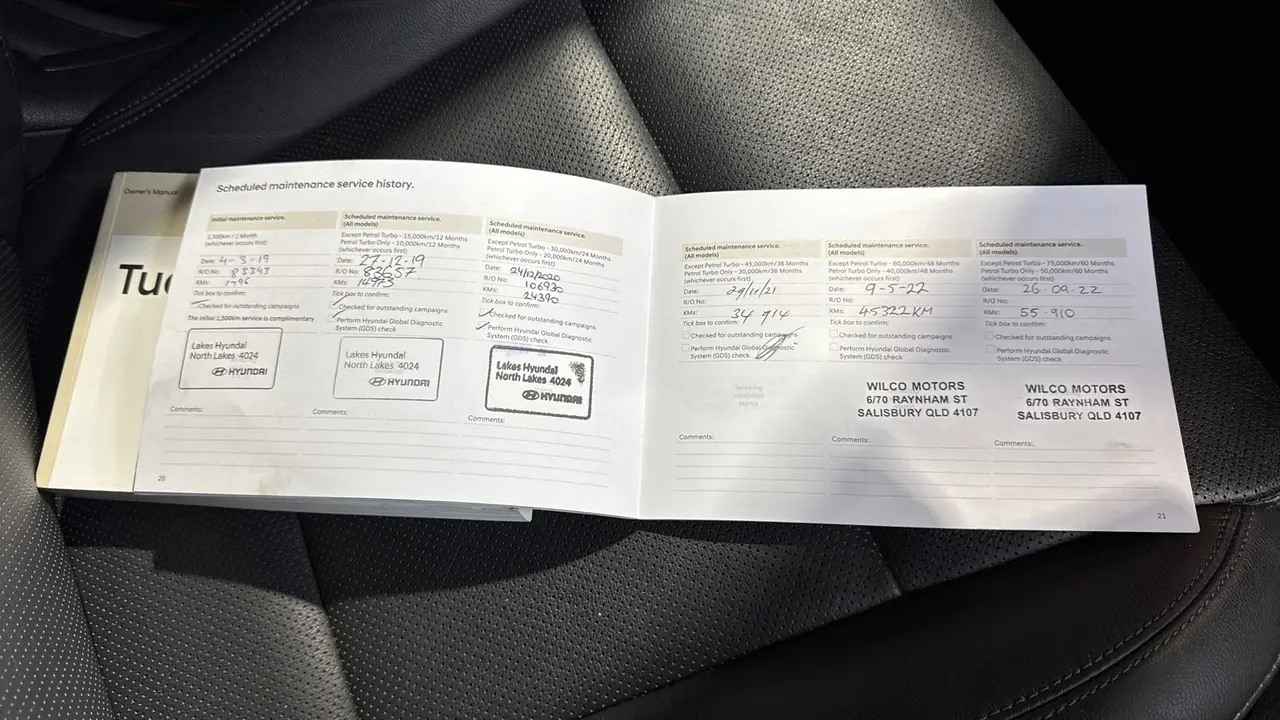 Owner's Manual
Tu
Scheduled maintenance service history.
Initial maintenance service.
1,500km / 1 Month
(whichever occurs first)
Date: 4-3-19
R/O No: 85343
KMs: 1496
Tick box to confirm:
Checked for outstanding campaigns
The initial 1,500km service is complimentary
Lakes Hyundai
North Lakes 4024
HYUNDAI
Comments:
Scheduled maintenance service.
(All models)
Except Petrol Turbo - 15,000km/12 Months
Petrol Turbo Only - 10,000km/12 Months
(whichever occurs first)
Date: 27-12-19
R/O No: 83657
KMs: 14973
Tick box to confirm:
Checked for outstanding campaigns
Perform Hyundai Global Diagnostic
System (GDS) check
Lakes Hyundai
North Lakes 4024
HYUNDAI
Comments:
Scheduled maintenance service.
(All models)
Except Petrol Turbo - 30,000km/24 Months
Petrol Turbo Only - 20,000km/24 Months
(whichever occurs first)
Date: 24/12/2020
R/O No: 106930
KMs: 24390
Tick box to confirm:
Checked for outstanding campaigns
Perform Hyundai Global Diagnostic
System (GDS) check
Lakes Hyundai
North Lakes 4024
HYUNDAI
Comments:
20
Scheduled maintenance service.
(All models)
Except Petrol Turbo - 45,000km/36 Months
Petrol Turbo Only - 30,000km/36 Months
(whichever occurs first)
Date: 29/11/21
R/O No:
KMs: 34 914
Tick box to confirm:
Checked for outstanding campaigns
Perform Hyundai Global Diagnostic
System (GDS) check
Servicing
stamp
Comments:
Scheduled maintenance service.
(All models)
Except Petrol Turbo - 60,000km/48 Months
Petrol Turbo Only - 40,000km/48 Months
(whichever occurs first)
Date: 9-5-22
R/O No:
KMs: 45322KM
Tick box to confirm:
Checked for outstanding campaigns
Perform Hyundai Global Diagnostic
System (GDS) check
WILCO MOTORS
6/70 RAYNHAM ST
SALISBURY QLD 4107
Comments:
Scheduled maintenance service.
(All models)
Except Petrol Turbo - 75,000km/60 Months
Petrol Turbo Only - 50,000km/60 Months
(whichever occurs first)
Date: 26-09-22
R/O No:
KMs: 55-910
Tick box to confirm:
Checked for outstanding campaigns
Perform Hyundai Global Diagnostic
System (GDS) check
WILCO MOTORS
6/70 RAYNHAM ST
SALISBURY QLD 4107
Comments:
21